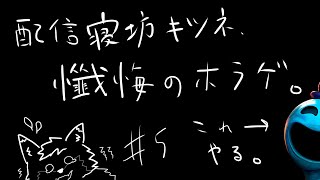 配信寝坊キツネ、
懺悔のホラゲ。
#5
これ→
やる。